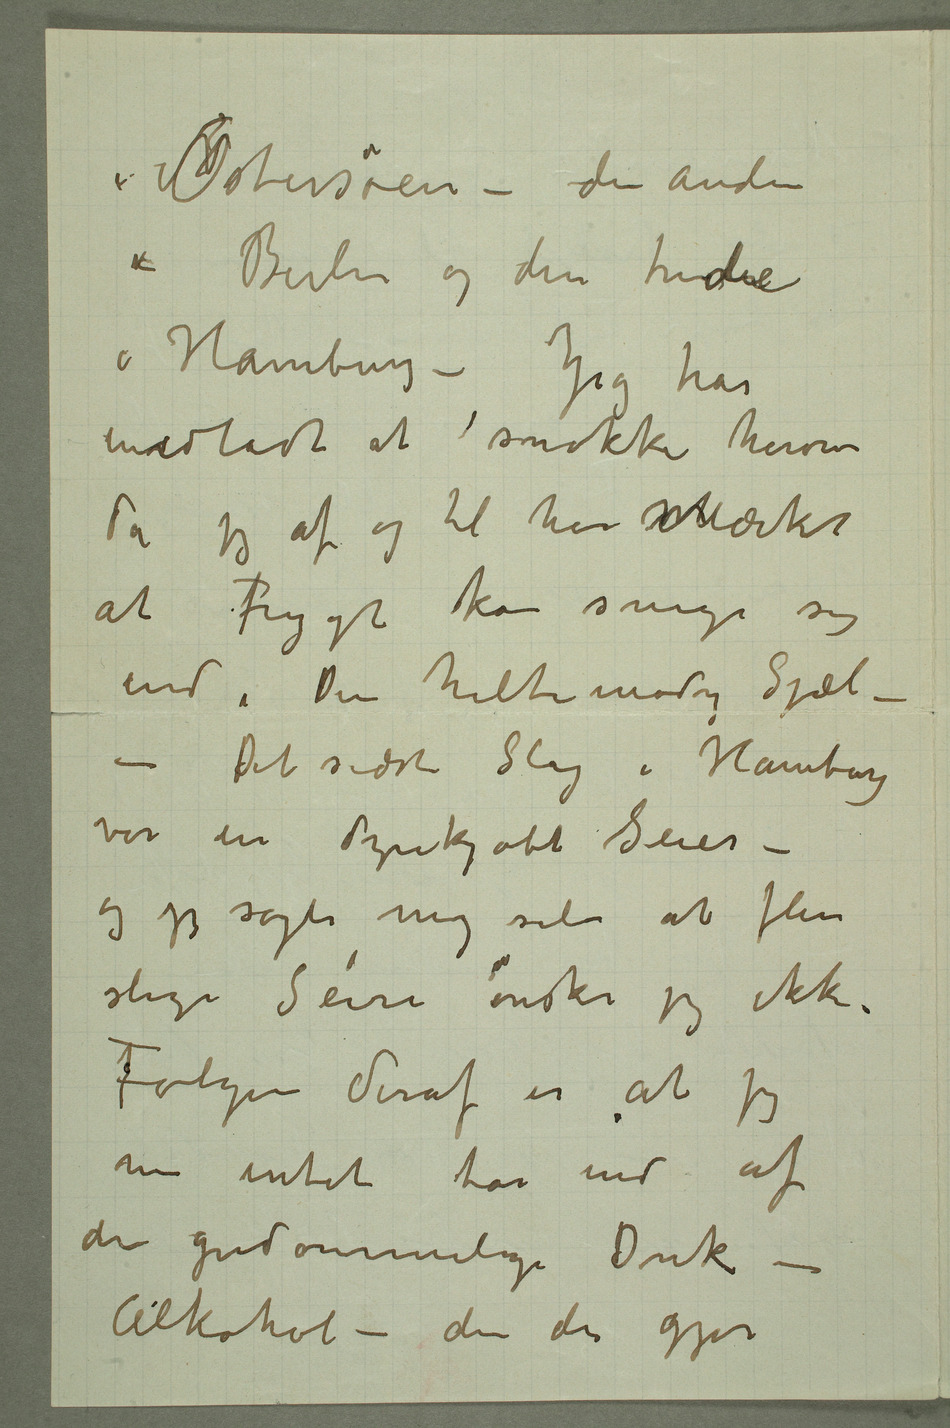 i Östersöen – den anden
i Berlin og den tredie
i Hamburg – Jeg har
undladt at snakke herom
da jeg af og til har mærket
at Frygt kan snige sig
ind i den heltemodig Sjæl –
– Det sidste Slag i Hamburg
var en dyrekjøbt Seier –
og jeg sagde mig selv at flere
slige Seire önsker jeg ikke.
Følgen deraf er at jeg
nu intet tar ind af
den guddommelige Drik –
Alkohol – den der gjør